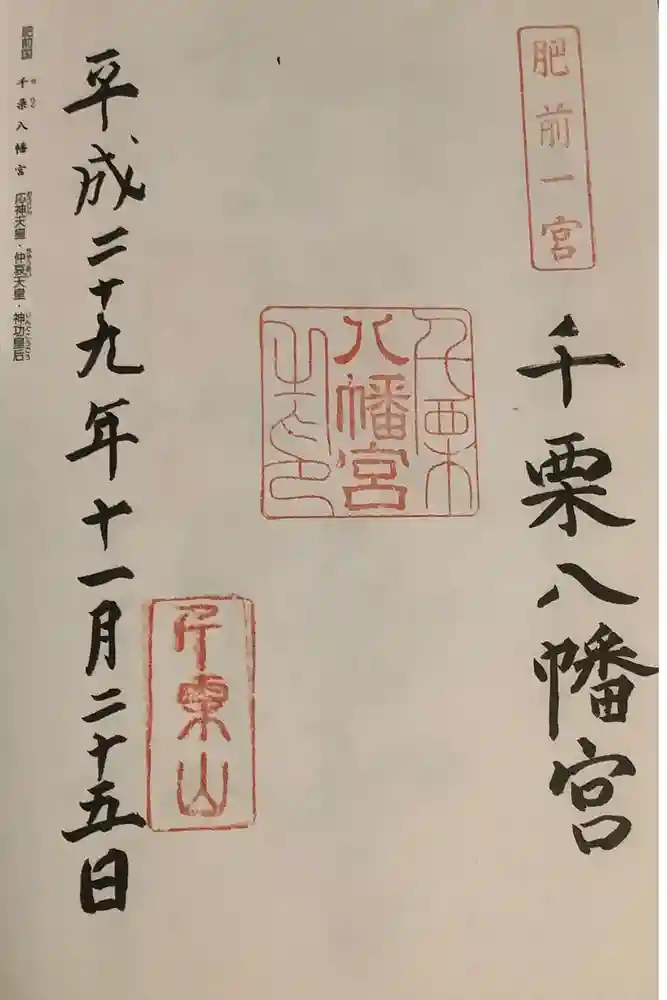 肥前一宮
千栗八幡宮
千栗
八幡宮
之印
千栗山
平成二十九年十一月二十五日
肥前国 千栗八幡宮 応神天皇・仲哀天皇・神功皇后